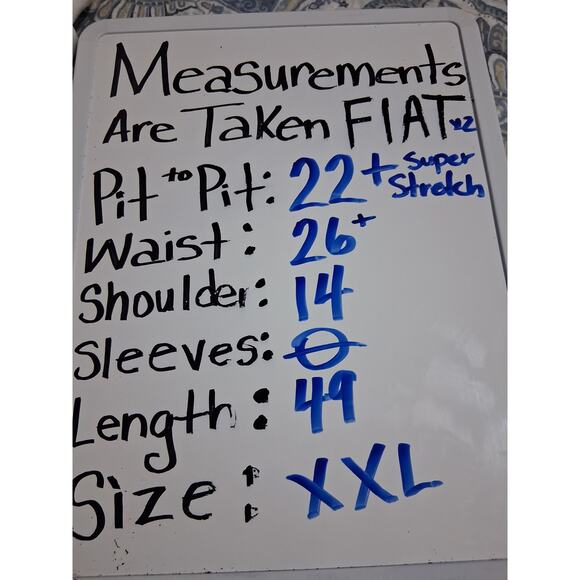 Measurements
Are Taken FlAT x2
Pit to Pit: 22+ Super Stretch
Waist: 26+
Shoulder: 14
Sleeves: 0
Length: 49
Size: XXL